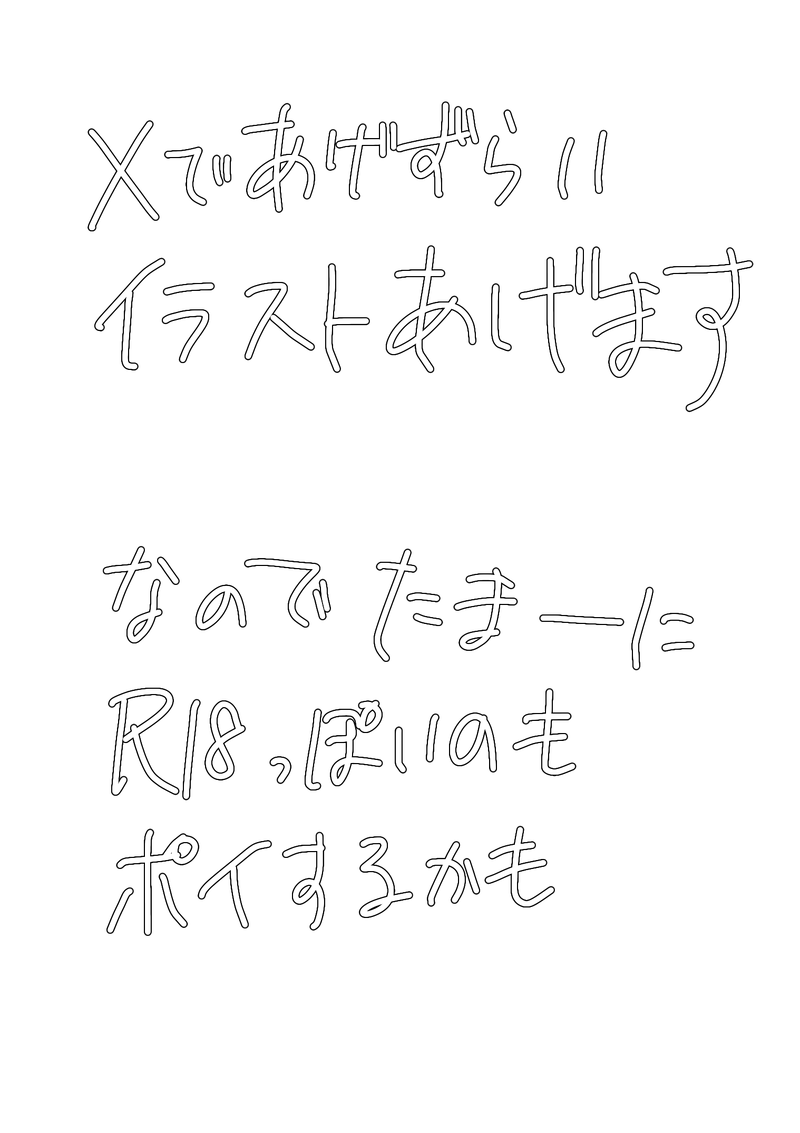 Xであげずらい
イラストあげます
なので たまーに
R18っぽいのも
ポイするかも